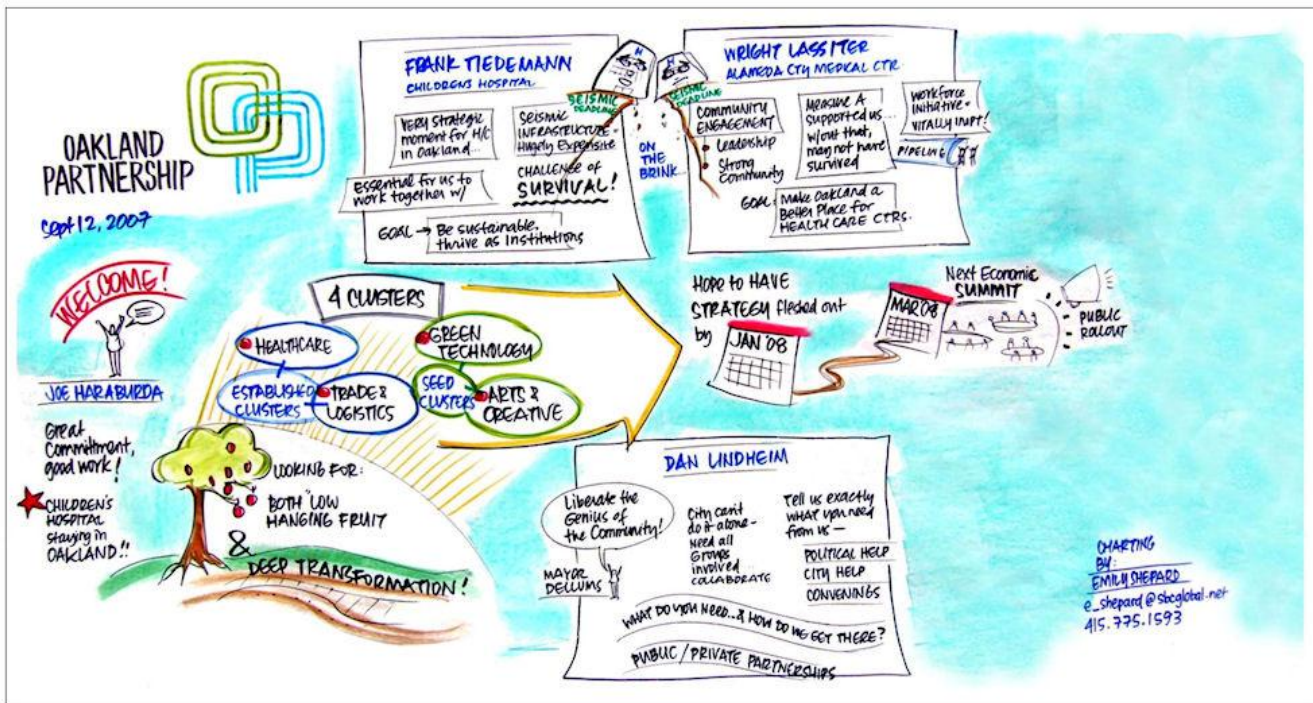 OAKLAND
PARTNERSHIP
Sept 12, 2007
WELCOME!
JOE HARABURDA
Great
Commitment,
good work!
CHILDREN'S
HOSPITAL
staying in
OAKLAND!!
FRANK TIEDEMANN
CHILDREN'S HOSPITAL
VERY STRATEGIC
moment for H/C
in Oakland...
Essential for us to
work together w/
SEISMIC
INFRASTRUCTURE -
Hugely Expensive
CHALLENGE OF
SURVIVAL!
GOAL → Be sustainable,
thrive as Institutions
H
SEISMIC
DEADLINE
ON
THE
BRINK...
H
SEISMIC
DEADLINE
WRIGHT LASSITER
ALAMEDA CTY MEDICAL CTR
COMMUNITY
ENGAGEMENT
Leadership
Strong
Community
Measure A
supported us...
w/out that,
may not have
survived
Workforce
Initiative -
VITALLY IMPT!
PIPELINE
GOAL: Make Oakland a
Better Place for
HEALTH CARE CTRS.
4 CLUSTERS
HEALTHCARE
ESTABLISHED
CLUSTERS
TRADE &
LOGISTICS
GREEN
TECHNOLOGY
SEED
CLUSTERS
ARTS &
CREATIVE
LOOKING FOR:
BOTH "LOW
HANGING FRUIT
&
DEEP TRANSFORMATION!
HOPE TO HAVE
STRATEGY fleshed out
by
JAN '08
MAR '08
Next Economic
SUMMIT
PUBLIC
ROLLOUT
DAN LINDHEIM
Liberate the
Genius of
the Community!
MAYOR
DELLUMS
City can't
do it alone -
Need all
Groups
involved...
COLLABORATE
Tell us exactly
WHAT you need
from us —
POLITICAL HELP
CITY HELP
CONVENINGS
WHAT DO YOU NEED...& HOW DO WE GET THERE?
PUBLIC / PRIVATE PARTNERSHIPS
CHARTING
BY:
EMILY SHEPARD
e_shepard@sbcglobal.net
415.775.1593